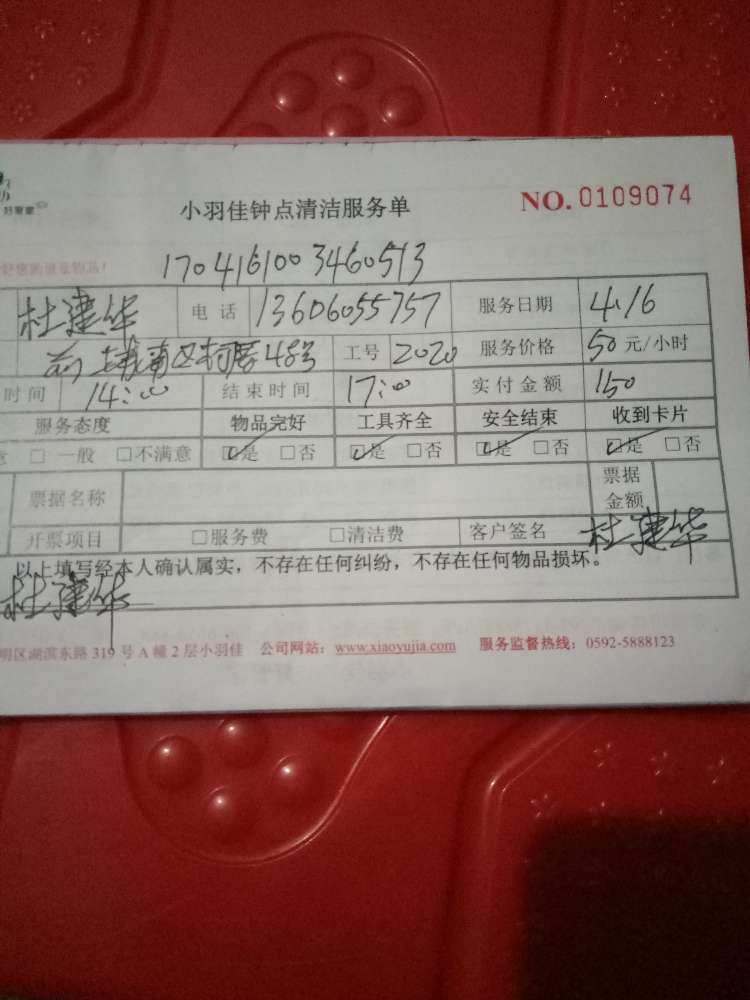 小羽佳钟点清洁服务单 NO. 0109074
1704161003460513
杜建华 电话 13606055757 服务日期 4.16
前埔南区 48号 工号 2020 服务价格 50 元/小时
时间 14:00 结束时间 17:00 实付金额 150
服务态度 物品完好 工具齐全 安全结束 收到卡片
□ 一般 □不满意 ☑是 □否 ☑是 □否 ☑是 □否 ☑是 □否
票据名称 票据金额
开票项目 □服务费 □清洁费 客户签名 杜建华
以上填写经本人确认属实，不存在任何纠纷，不存在任何物品损坏。
杜建华
明区湖滨东路 319 号 A 幢 2 层小羽佳 公司网站：www.xiaoyujia.com 服务监督热线：0592-5888123